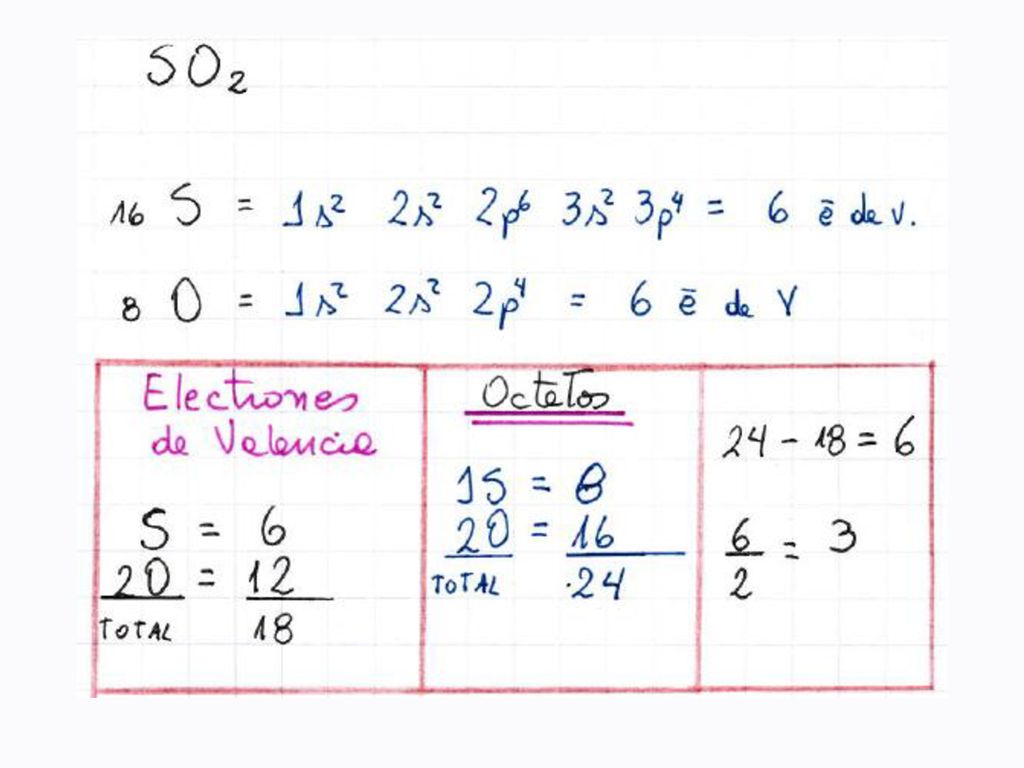 SO₂
₁₆ S = 1s² 2s² 2p⁶ 3s² 3p⁴ = 6 ē de v.
₈ O = 1s² 2s² 2p⁴ = 6 ē de V
Electrones
de Valencia
S = 6
2O = 12
TOTAL 18
Octetos
1S = 8
2O = 16
TOTAL .24
24 - 18 = 6
6/2 = 3